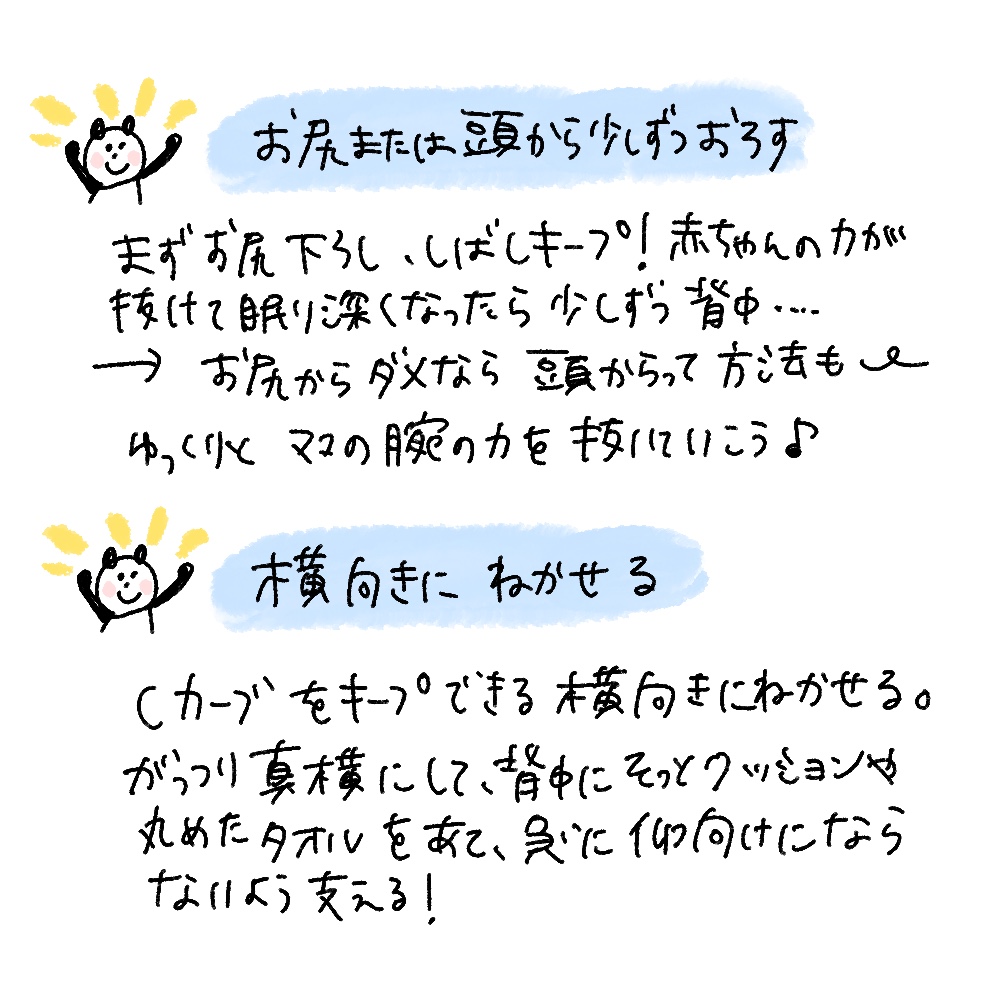 お尻または頭から少しずつおろす
まずお尻下ろし、しばしキープ!赤ちゃんの力が
抜けて眠り深くなったら少しずつ背中....
→ お尻からダメなら 頭からって方法も
ゆっくりと ママの腕の力を 抜いていこう♪
横向きに ねかせる
Cカーブをキープできる横向きにねかせる。
がっつり真横にして、背中にそっとクッションや
丸めたタオルをあて、急に仰向けになら
ないよう支える!